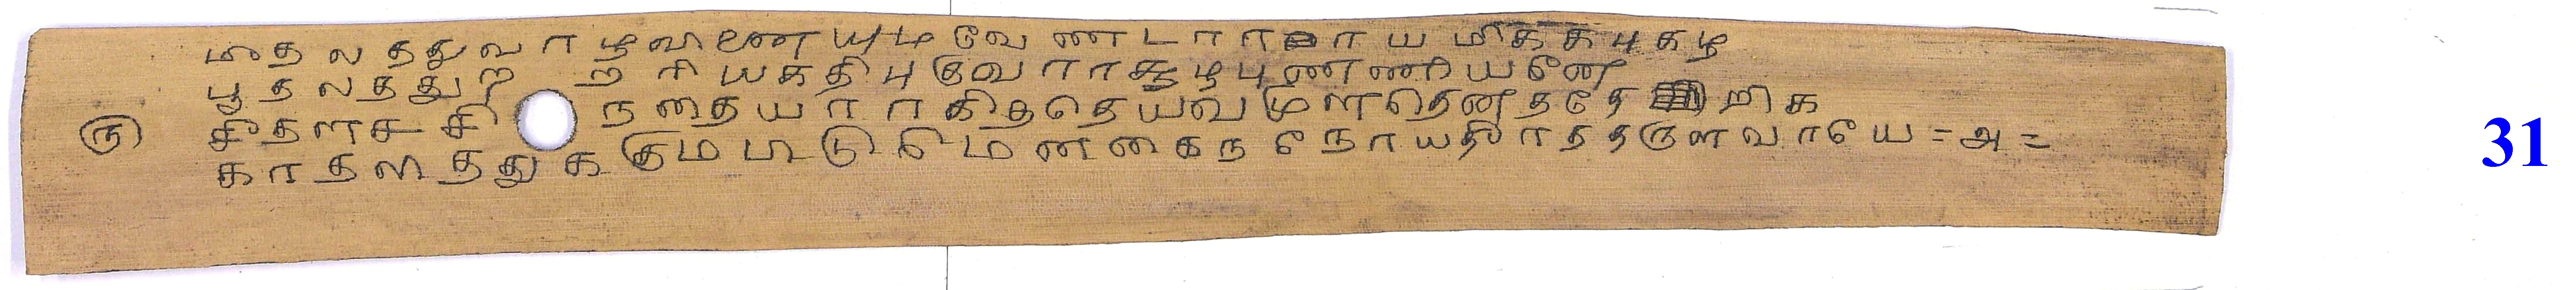 மைதலத்துவாழவிணையுமவேணடாராயமிகக புகழ
பூதலத்துற றரியகதிபுகுவோராசூழபுணணியனே
ரு சீதளசசிநதையராகிததெயவமுளதெனததேறிக
காதலாத்துககுமபிடுமெனகைநநோயதீாததருளவாயே = அ =
31